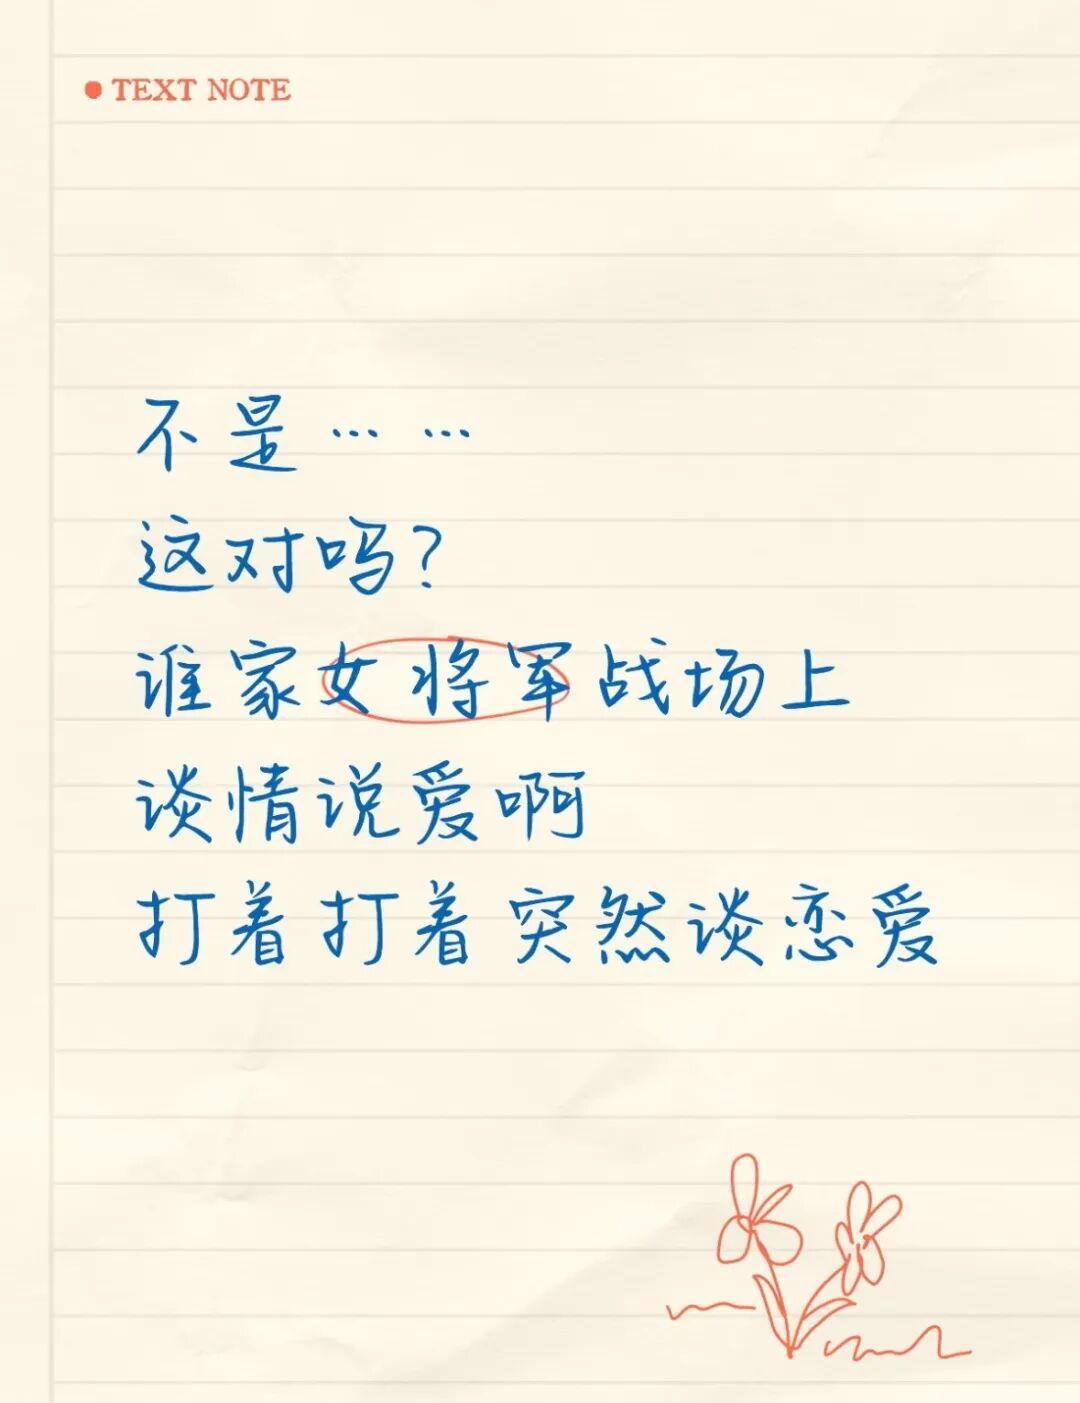 TEXT NOTE
不是……
这对吗？
谁家女将军战场上
谈情说爱啊
打着打着突然谈恋爱